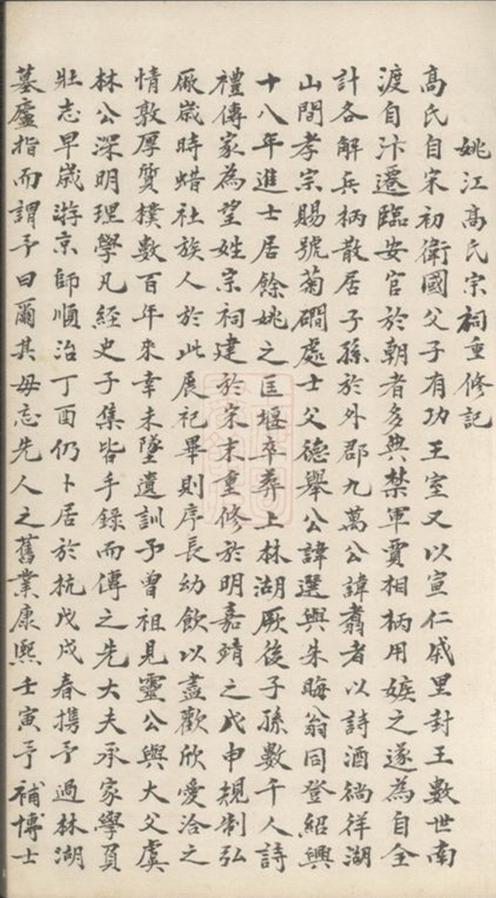 姚江高氏宗祠重修記
高氏自宋初衛國父子有功王室又以宣仁戚里封王數世南
渡自汴遷臨安官於朝者多典禁軍賈相柄用嫉之遂為自全
計各解兵柄散居子孫於外郡九萬公諱翥者以詩酒徜徉湖
山間孝宗賜號菊磵處士父德舉公諱選與朱晦翁同登紹興
十八年進士居餘姚之匡堰卒葬上林湖厥後子孫數千人詩
禮傳家為望姓宗祠建於宋末重修於明嘉靖之戊申規制弘
厰歲時蜡社族人於此展祀畢則序長幼飲以盡歡欣愛洽之
情敦厚質樸數百年來幸未墜遺訓予曾祖見靈公與大父虞
林公深明理學凡經史子集皆手錄而傳之先大夫承家學負
壯志早歲游京師順治丁酉仍卜居於杭戊戌春攜予過林湖
墓廬指而謂予曰爾其毋忘先人之舊業康熙壬寅予補博士